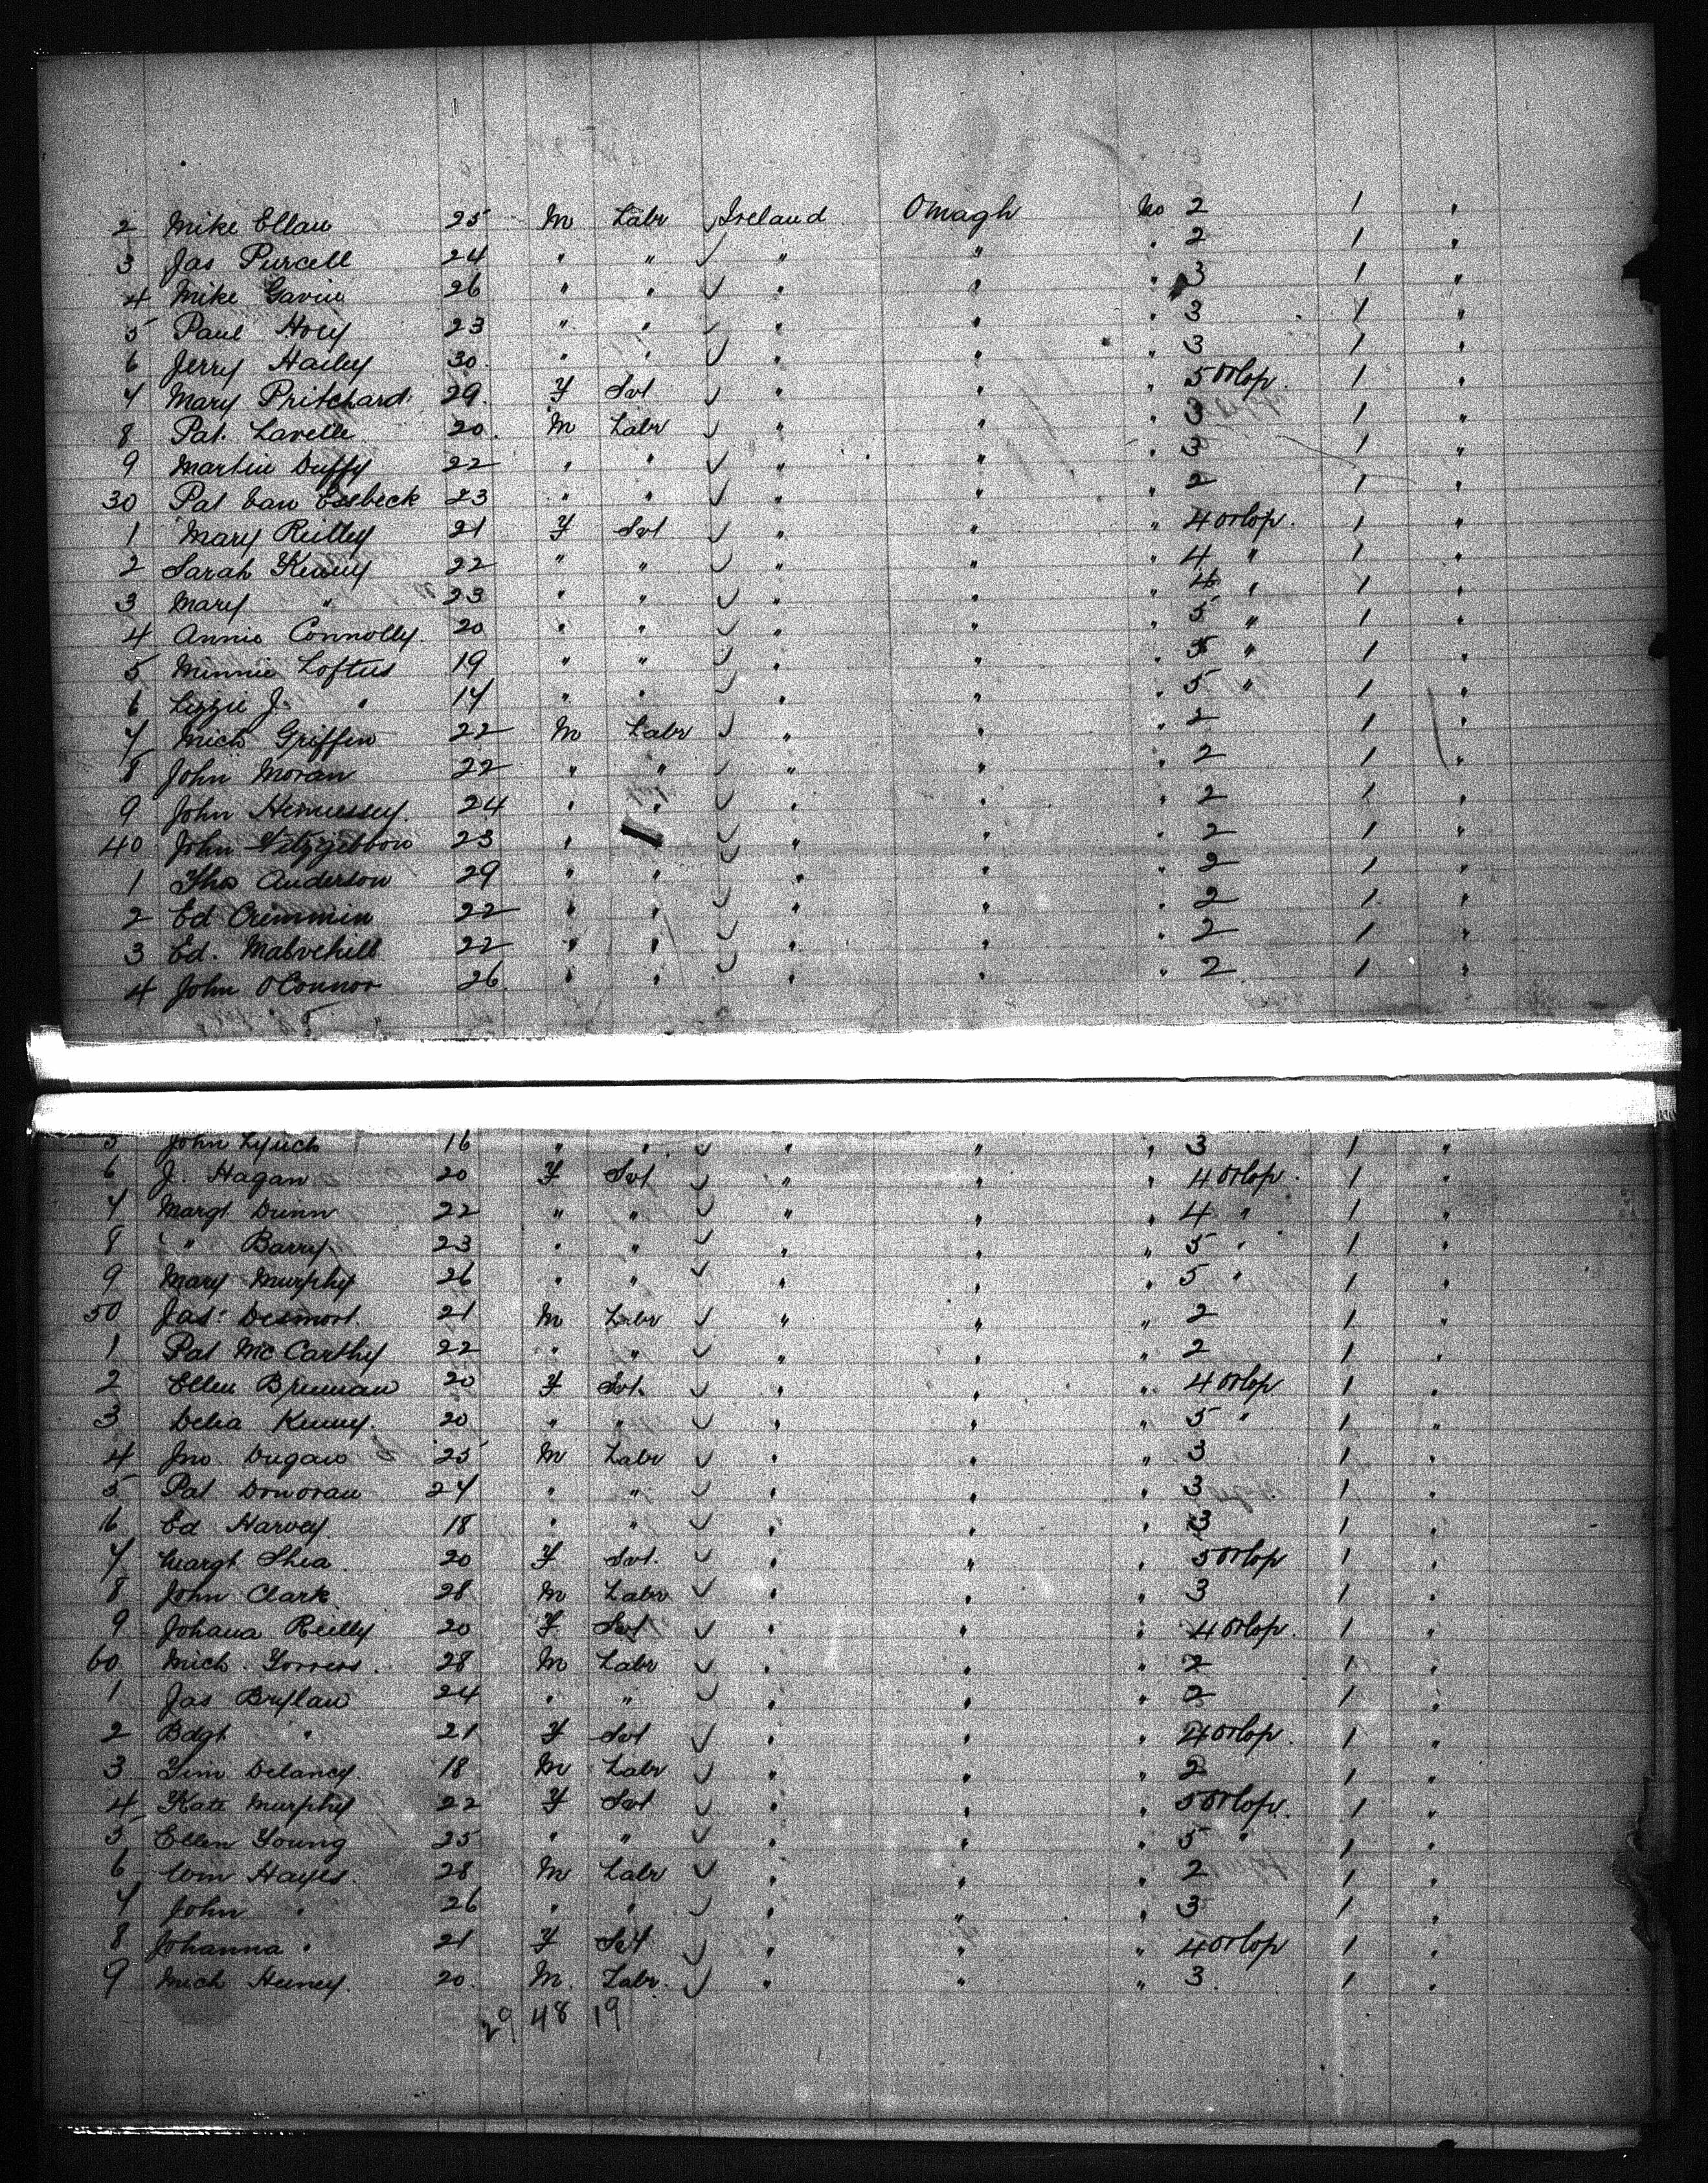 2 Mike Ellan 25 M Labr Ireland Omagh No 2 1 "
3 Jas Purcell 24 " " " " " 2 1 "
4 Mike Gavin 26 " " " " " 3 1 "
5 Paul Hoey 23 " " " " " 3 1 "
6 Jerry Hailey 30 " " " " " 3 1 "
7 Mary Pritchard 29 F Svt " " " 5 Orlop 1 "
8 Pat. Lavelle 20 M Labr " " " 3 1 "
9 Martin Duffy 22 " " " " " 3 1 "
30 Pat Van Essbeck 23 " " " " " 2 1 "
1 Mary Reilley 21 F Svt " " " 4 Orlop. 1 "
2 Sarah Kenny 22 " " " " " 4 " 1 "
3 Mary " 23 " " " " " 4 " 1 "
4 Annie Connolly 20 " " " " " 5 " 1 "
5 Minnie Loftus 19 " " " " " 5 " 1 "
6 Lizzie J. " 17 " " " " " 5 " 1 "
7 Mich Griffen 22 M Labr " " " 2 1 "
8 John Moran 22 " " " " " 2 1 "
9 John Hennessey 24 " " " " " 2 1 "
40 John Fitzgibbon 23 " " " " 2 1 "
1 Thos Anderson 29 " " " " " 2 1 "
2 Ed Cremmin 22 " " " " " 2 1 "
3 Ed. Malvehill 22 " " " " " 2 1 "
4 John OConnor 26 " " " " " 2 1 "
5 John Lynch 16 " " " " " 3 1 "
6 J. Hagan 20 F Svt " " " 4 Orlop. 1 "
7 Margt. Dunn 22 " " " " " 4 " 1 "
8 " Barry 23 " " " " " 5 " 1 "
9 Mary Murphy 26 " " " " " 5 " 1 "
50 Jas: Desmont 21 M Labr " " " 2 1 "
1 Pat McCarthy 22 " " " " " 2 1 "
2 Ellen Brennan 20 F Svt. " " " 4 Orlop 1 "
3 Delia Kenny 20 " " " " " 5 " 1 "
4 Jno Dugan 25 M Labr " " " 3 1 "
5 Pat Donovan 24 " " " " " 3 1 "
6 Ed Harvey 18 " " " " " 3 1 "
7 Margt. Shea 20 F Svt. " " " 5 Orlop 1 "
8 John Clark 28 M Labr " " " 3 1 "
9 Johana Reilly 20 F Svt " " " 4 Orlop. 1 "
60 Mich. 28 M Labr " " " 2 1 "
1 Jas Boylan 24 " " " " " 2 1 "
2 Bdgt " 21 F Svt " " " 4 Orlop. 1 "
3 Tim Delaney 18 M Labr " " " 2 1 "
4 Kate Murphy 22 F Svt " " " 5 Orlop. 1 "
5 Ellen Young 25 " " " " " 5 " 1 "
6 Wm Hayes 28 M Labr " " " 2 1 "
7 John " 26 " " " " " 3 1 "
8 Johanna " 21 F Svt " " " 4 Orlop 1 "
9 Mich Heeney 20 M. Labr. " " " 3 1 "
29 48 19